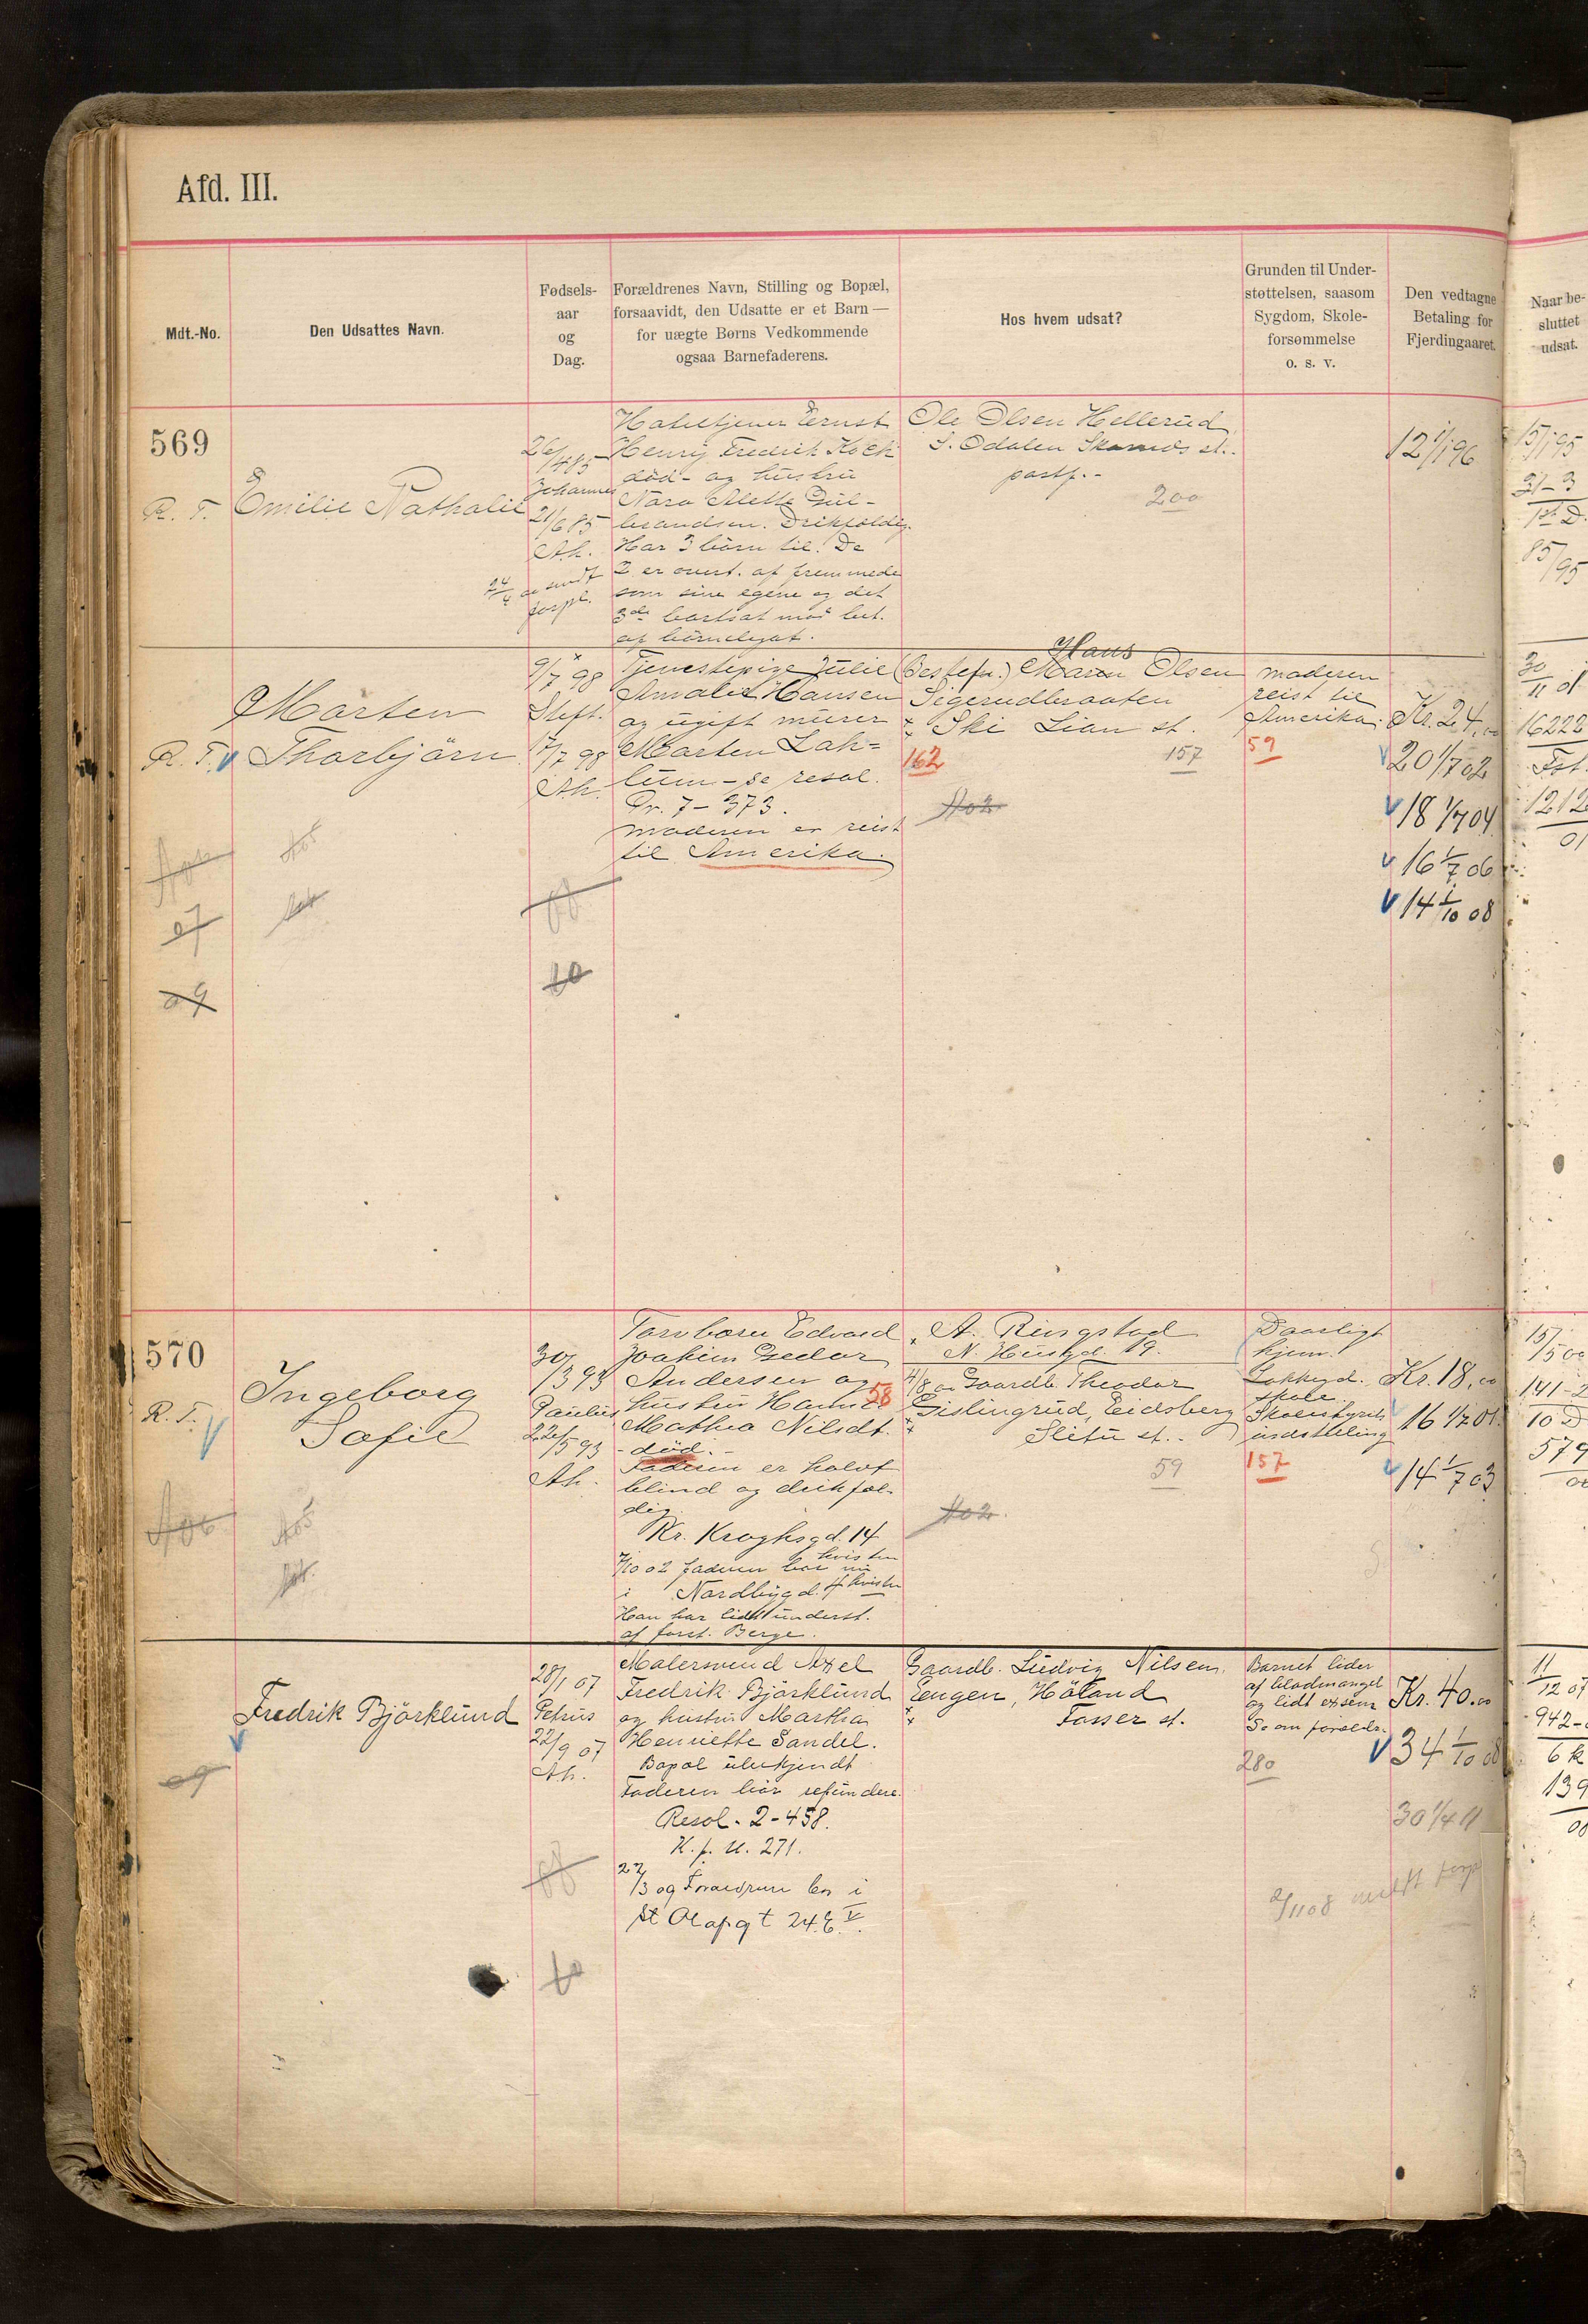 Afd. III.
Mdt.-No.
Den Udsattes Navn.
Fødsels-
aar
og
Dag.
Forældrenes Navn, Stilling og Bopæl,
forsaavidt, den Udsatte er et Barn —
for uægte Børns Vedkommende
ogsaa Barnefaderens.
Hos hvem udsat?
Grunden til Under-
støttelsen, saasom
Sygdom, Skole-
forsømmelse
o. s. v.
Den vedtagne
Betaling for
Fjerdingaaret.
Naar be-
sluttet
udsat.
569
R. T.
Emilie Nathalie
26/4 85
Johannes
21/6 85
Ah.
forpl.
Hoteltjener Ernst
Henrij Fredrik Koch
död - og hustru
Nara Alette Gul-
brandsen. Drikfældig.
Har 3 börn til. De
2 er overt. af fremmede
som sine egne og det
3de bortsat mod bet.
af börnelegat.
Ole Olsen Hellerud
S. Odalen Skarnes st..
postf. -
200
12 1/1 96
15/1 95
21-3
85/95
R. T.
Marten
Thorbjörn
9/7 98
Steft.
17/7 98
Ah.
Tjenestepige Julie
Amalie Hansen
og ugift murer
Marten Lah-
lum - se resol.
Pr. 7 - 373.
moderen er reist
til Amerika.
Hans
(Besfefa.) Maren Olsen
Sigerudbraaten
Ski Lian st.
162
157
A02
moderen
reist til
Amerika.
59
Kr. 24,00
20 1/7 02
18 1/7 04
16 1/7 06
14 1/10 08
30/11 01
16222
1212
01
07
09
10
570
R. T.
Ingeborg
Sofie
30/3 93
Paulus
22/5 93
Ah.
Torvbærer Edvard
Joakim Gedor
Andersen og
hustru Hanna
Mathea Nilsdt.
- död. -
Faderen er halvt
blind og drikfæl-
dig.
Kr. Kroghsgd. 14
7/10 02 faderen bor nu
i Nordbygd. 4 kvisten
Han har lidt underst.
af forst. Berge.
A. Ringstad
N. Husgd. 19.
58
4/8 00 Gaardb. Theodor
Gislingrud, Eidsberg
Slitu st..
59
A02.
Daarligt
hjem.
Lakkegd.
skole
Skolestyrets
indstilling
157
Kr. 18,00
16 1/7 01.
14 1/7 03
15/5 00
141-2
10 D
579
Fredrik Björklund
28/1 07
Petrus
22/9 07
Ah.
Malersvend Axel
Fredrik Björklund
og hustru Martha
Henriette Sandel.
Bopæl ubekjendt
Faderen bör refundere.
Resol. 2 - 458.
K. f. U. 271.
22/3 09 Forældrene bor i
St Olafs gt 24. V.
Gaardb. Ludvig Nilsen,
Engen, Höland
Fosser st.
Barnet lider
af blodmangel
og lidt eksem
Se om forældr.
280
2/11 08
Kr. 40.00
34 1/10 08
30 1/4 11
11/12 07
942-
6 k
139
09
10